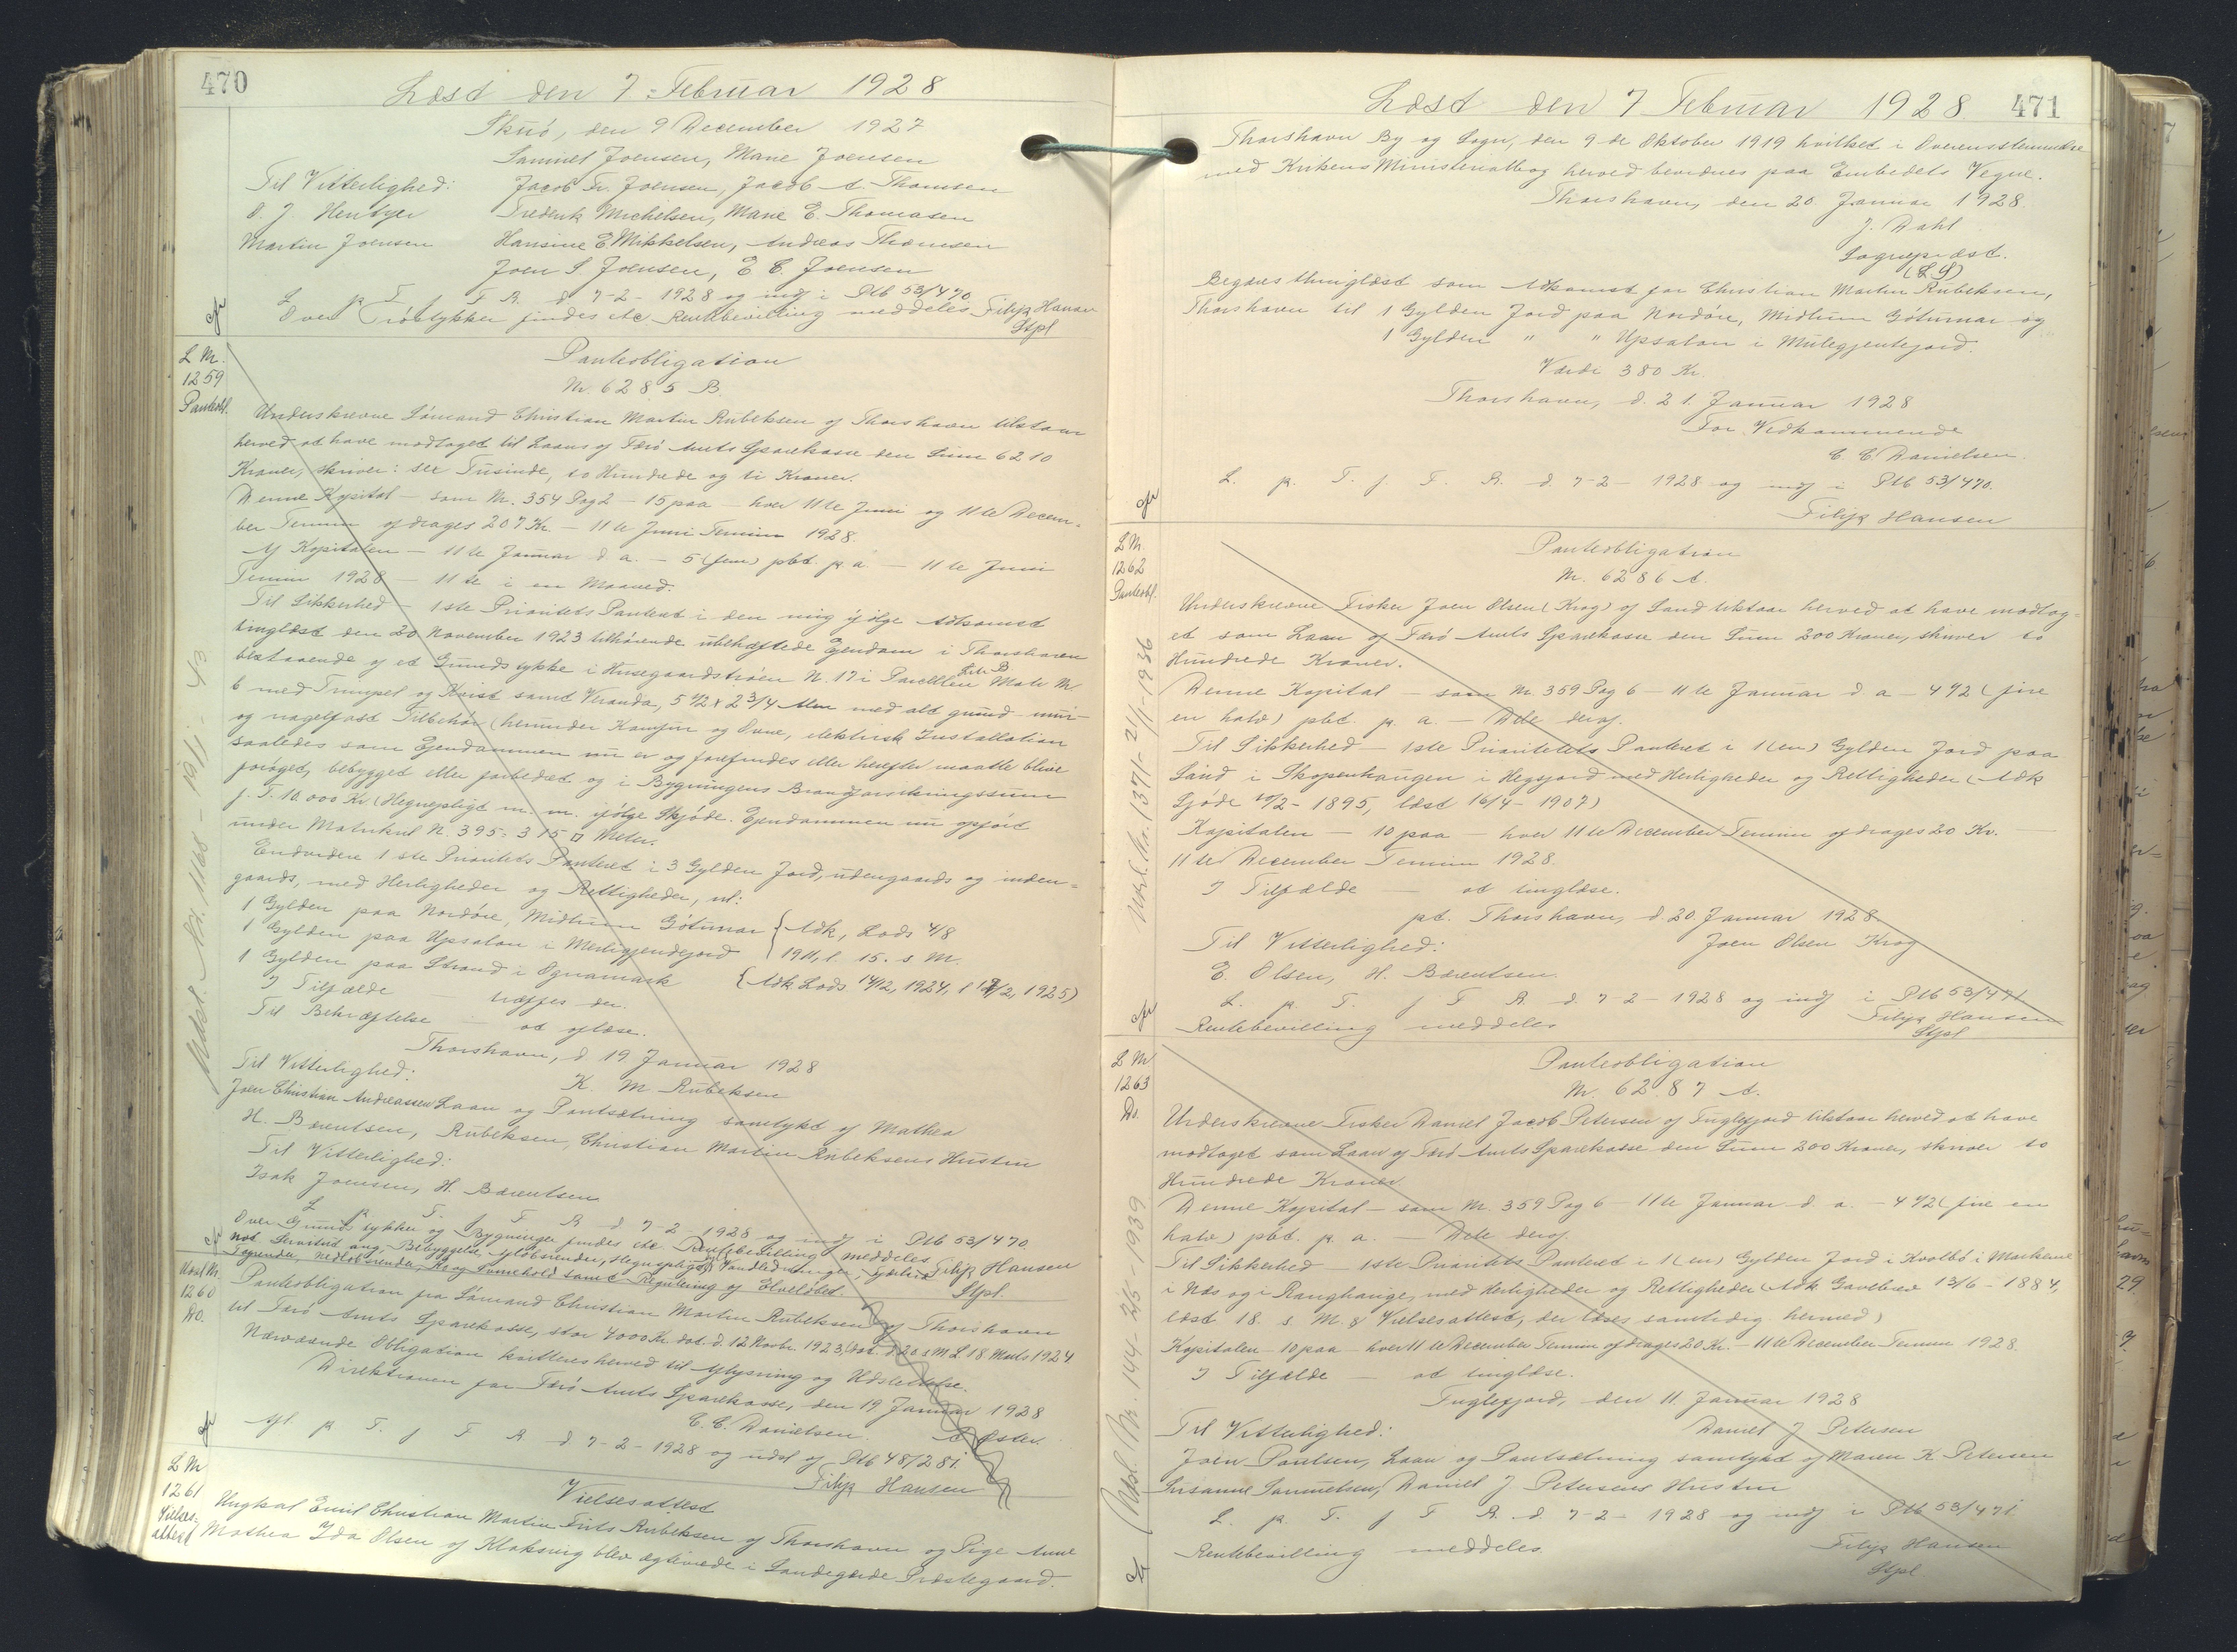 470
Læst den 7. Februar 1928
Skuø, den 9 December 1927
Samuel Joensen, Marie Joensen
Til Vitterlighed: Jacob Fr. Joensen, Jacob A. Thomsen
D. J. Hentze Frederik Michelsen, Marie E. Thomasen
Martin Joensen Hansine E. Mikkelsen, Andreas Thomsen
Joen S Joensen, E C. Joensen
L p T. f T R. d 7-2-1928 og indf i Ptb 53/470.
Over findes etc Rentebevilling meddeles Filip Hansen
Stpl
L Nr.
1259
Panteobl.
Panteobligation
Nr. 6285 B.
Underskrevne Sømand Christian Martin Rubeksen af Thorshavn tilstaar
herved at have modtaget til Laans af Færø Amts Sparekasse den Sum 6210
Kroner, skriver: sex Tusinde, to Hundrede og ti Kroner.
Denne Kapital – som Nr. 354 Pag 2 – 15 paa – hver 11te Juni og 11te Decem-
ber Termin afdrages 207 Kr – 11te Juni Termin 1928.
Af Kapitalen – 11te Januar d. a. – 5 (fem) pbt. p a. – 11te Juni
Termin 1928 – 11te i en Maaned.
Til Sikkerhed – 1ste Prioritets Panteret i den mig ifølge Adkomst
tinglæst den 20 November 1923 tilhørende ubehæftede Ejendom i Thorshavn
bestaaende af et Grundstykke i Husegaardstrøen N. 17 i Parcellen Litr B Matr Nr
6 med Trumpel og Kvist samt Veranda, 5 1/2 x 2 3/4 Alen med alt grund- mur-
og nagelfast Tilbehør (herunder Komfur og Ovne, elektrisk Installation
saaledes som Ejendommen nu er og forefindes eller herefter maatte blive
forøget, bebygget eller forbedret og i Bygningens Brandforsikringssum
f. T. 10.000 Kr. (Hegnspligt m. m. ifølge Skjøde. Ejendommen nu opført
under Matrikul N. 395 = 315 □ Meter.
Endvidere 1ste Prioritets Panteret i 3 Gylden Jord, udengaards og inden-
gaards, med Herligheder og Rettigheder, nl:
1 Gylden paa Nordøre, Midtrum Gøtumar { Adk, Lods 4/8
1 Gylden paa Upsalon i Merligjendejord { 1911, l. 15. s M.
1 Gylden paa Strond i Ognamark { Adk Lods 14/12, 1924, l 12/2, 1925)
I Tilfælde – træffes der.
Til Bekræftelse – at aflæse.
Thorshavn, d 19 Januar 1928
Til Vitterlighed: K. M Rubeksen
Joen Christian Andreassen Laan og Pantsætning samtykt af Mathea
H. Bærentsen, Rubeksen, Christian Martin Rubeksens Hustru
Til Vitterlighed:
Isak Joensen, H. Bærentsen
L p T. f T R d 7-2-1928 og indf i Ptb 53/470.
Over Grundstykker og Bygninger findes etc. Rentebevilling meddeles
not Servitut ang. Bebyggelse, Hegnspligt, Vandledninger, Filip Hansen
samt Regulering af Elveløbet. Stpl.
Udsl Nr.
1260
Do.
Panteobligation fra Sømand Christian Martin Rubeksen af Thorshavn
til Færø Amts Sparekasse, stor 4000 Kr. dat. d. 12 Novbr. 1923, d 20 s M L. 18 Marts 1924
Nærværende Obligation kvitteres herved til Aflysning og Udslettelse.
Direktionen for Færø Amts Sparekasse, den 19 Januar 1928
C. C. Danielsen. Øster.
Afl. p T. f T R. d 7-2-1928 og udsl af Ptb 48/281.
Filip Hansen
Udsl. Nr. 1168 – 19/1 – 43
L Nr
1261
Vielses-
attest
Vielsesattest
Ungkal Emil Christian Martin Frits Rubeksen af Thorshavn og Pige Anne
Mathea Ida Olsen af Klaksvig blev ægteviede i Sandegærde Præstegaard.
471
Læst den 7 Februar 1928
Thorshavn By og Sogn, den 9de Oktober 1919 hvilket i Overensstemmelse
med Kirkens Ministerialbog herved bevidnes paa Embedets Vegne.
Thorshavn, den 20 Januar 1928.
J. Dahl
Sognepræst.
(L. S)
Begæres thinglæst som Adkomst for Christian Martin Rubeksen,
Thorshavn til 1 Gylden Jord paa Nordøre, Midtrum Gøtumar og
1 Gylden " " Upsalon i Mulegjentejord.
Værdi 380 Kr.
Thorshavn, d. 21. Januar 1928
For Vedkommende
C. C. Danielsen.
L. p. T. f. T. R. d. 7-2-1928 og indf i Ptb 53/470.
Filip Hansen
L Nr
1262
Panteobl.
Panteobligation
Nr. 6286 A.
Underskrevne Fisker Joen Olsen (Krog) af Sand tilstaar herved at have modtag-
et som Laan af Færø Amts Sparekasse den Sum 200 Kroner, skriver to
Hundrede Kroner.
Denne Kapital – som Nr 359 Pag 6 – 11te Januar d a – 4 1/2 (fire
en halv) pbt. p. a. – Dele deraf.
Til Sikkerhed – 1ste Prioritets Panteret i 1 (en) Gylden Jord paa
Sand i Skopenhaugen i Hegsjord med Herligheder og Rettigheder (Adk
Sjøde 10/2-1895, læst 16/4-1907)
Kapitalen – 10 paa – hver 11te December Termin afdrages 20 Kr. –
11te December Termin 1928.
I Tilfælde – at tinglæse.
pt. Thorshavn, d. 20 Januar 1928.
Til Vitterlighed: Joen Olsen Krog
E. Olsen, H. Bærentsen.
L. p. T. f T R. d. 7-2-1928 og indf i Ptb 53/471
Rentebevilling meddeles Filip Hansen
Stpl
Udsl. Nr. 137/- 21/1-1936
L Nr
1263
Do.
Panteobligation
Nr. 6287 A.
Underskrevne Fisker Daniel Jacob Petersen af Fuglefjord tilstaar herved at have
modtaget som Laan af Færø Amts Sparekasse den Sum 200 Kroner, skriver to
Hundrede Kroner
Denne Kapital – som Nr. 359 Pag 6 – 11te Januar d. a. – 4 1/2 (fire en
halv) pbt. p. a. – Dele deraf.
Til Sikkerhed – 1ste Prioritets Panteret i 1 (en) Gylden Jord i Kvolbø i Markene
i Nes og i Ranghange, med Herligheder og Rettigheder (Adk Gavebrev 13/6-1884,
læst 18. s M. & Vielsesattest, der læses samtidig hermed)
Kapitalen – 10 paa – hver 11te December Termin afdrages 20 Kr. – 11te December Termin 1928.
I Tilfælde – at tinglæse.
Fuglefjord, den 11 Januar 1928
Til Vitterlighed: Daniel J Petersen
Joen Poulsen, Laan og Pantsætning samtykt af Maren K Petersen
Susanne Samuelsen, Daniel J Petersens Hustru
L. p. T. f T R. d. 7-2-1928 og indf i Ptb 53/471
Rentebevilling meddeles Filip Hansen
Stpl
Udsl. Nr. 144 - 2/5 - 1939